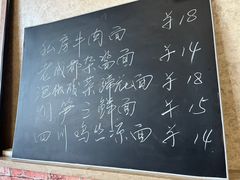 私房牛肉面 ¥18
老成都杂酱面 ¥14
泡椒酸菜蹄花面 ¥18
刨笋三鲜面 ¥15
四川鸡丝凉面 ¥14